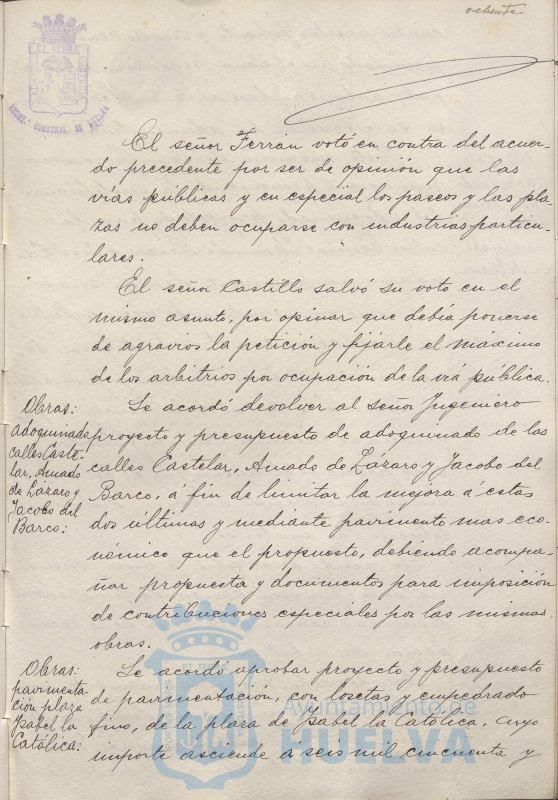 ochenta
El señor Ferrán votó en contra del acuer-
do precedente por ser de opinión que las
vías públicas y en especial los paseos y las pla-
zas no deben ocuparse con industrias particu-
lares.
El señor Castillo salvó su voto en el
mismo asunto, por opinar que debía ponerse
de agravios la petición y fijárle el máximo
de los arbitrios por ocupación de la vía pública.
Obras:
adoquinado
calles Caste-
lar, Amado
de Lázaro y
Jacobo del
Barco:
Se acordó devolver al señor Ingeniero
proyecto y presupuesto de adoquinado de las
calles Castelar, Amado de Lázaro y Jacobo del
Barco, a fin de limitar la mejora á estas
dos últimas y mediante pavimento mas eco-
nómico que el propuesto, debiendo acompa-
ñar propuesta y documentos para imposición
de contribuciones especiales por las mismas
obras.
Obras:
pavimenta-
ción plaza
Ysabel la
Católica:
Se acordó aprobar proyecto y presupuesto
de pavimentación, con losetas y empedrado
fino, de la plaza de Ysabel la Católica, cuyo
importe asciende á seis mil cincuenta y
Ayuntamiento de
HUELVA